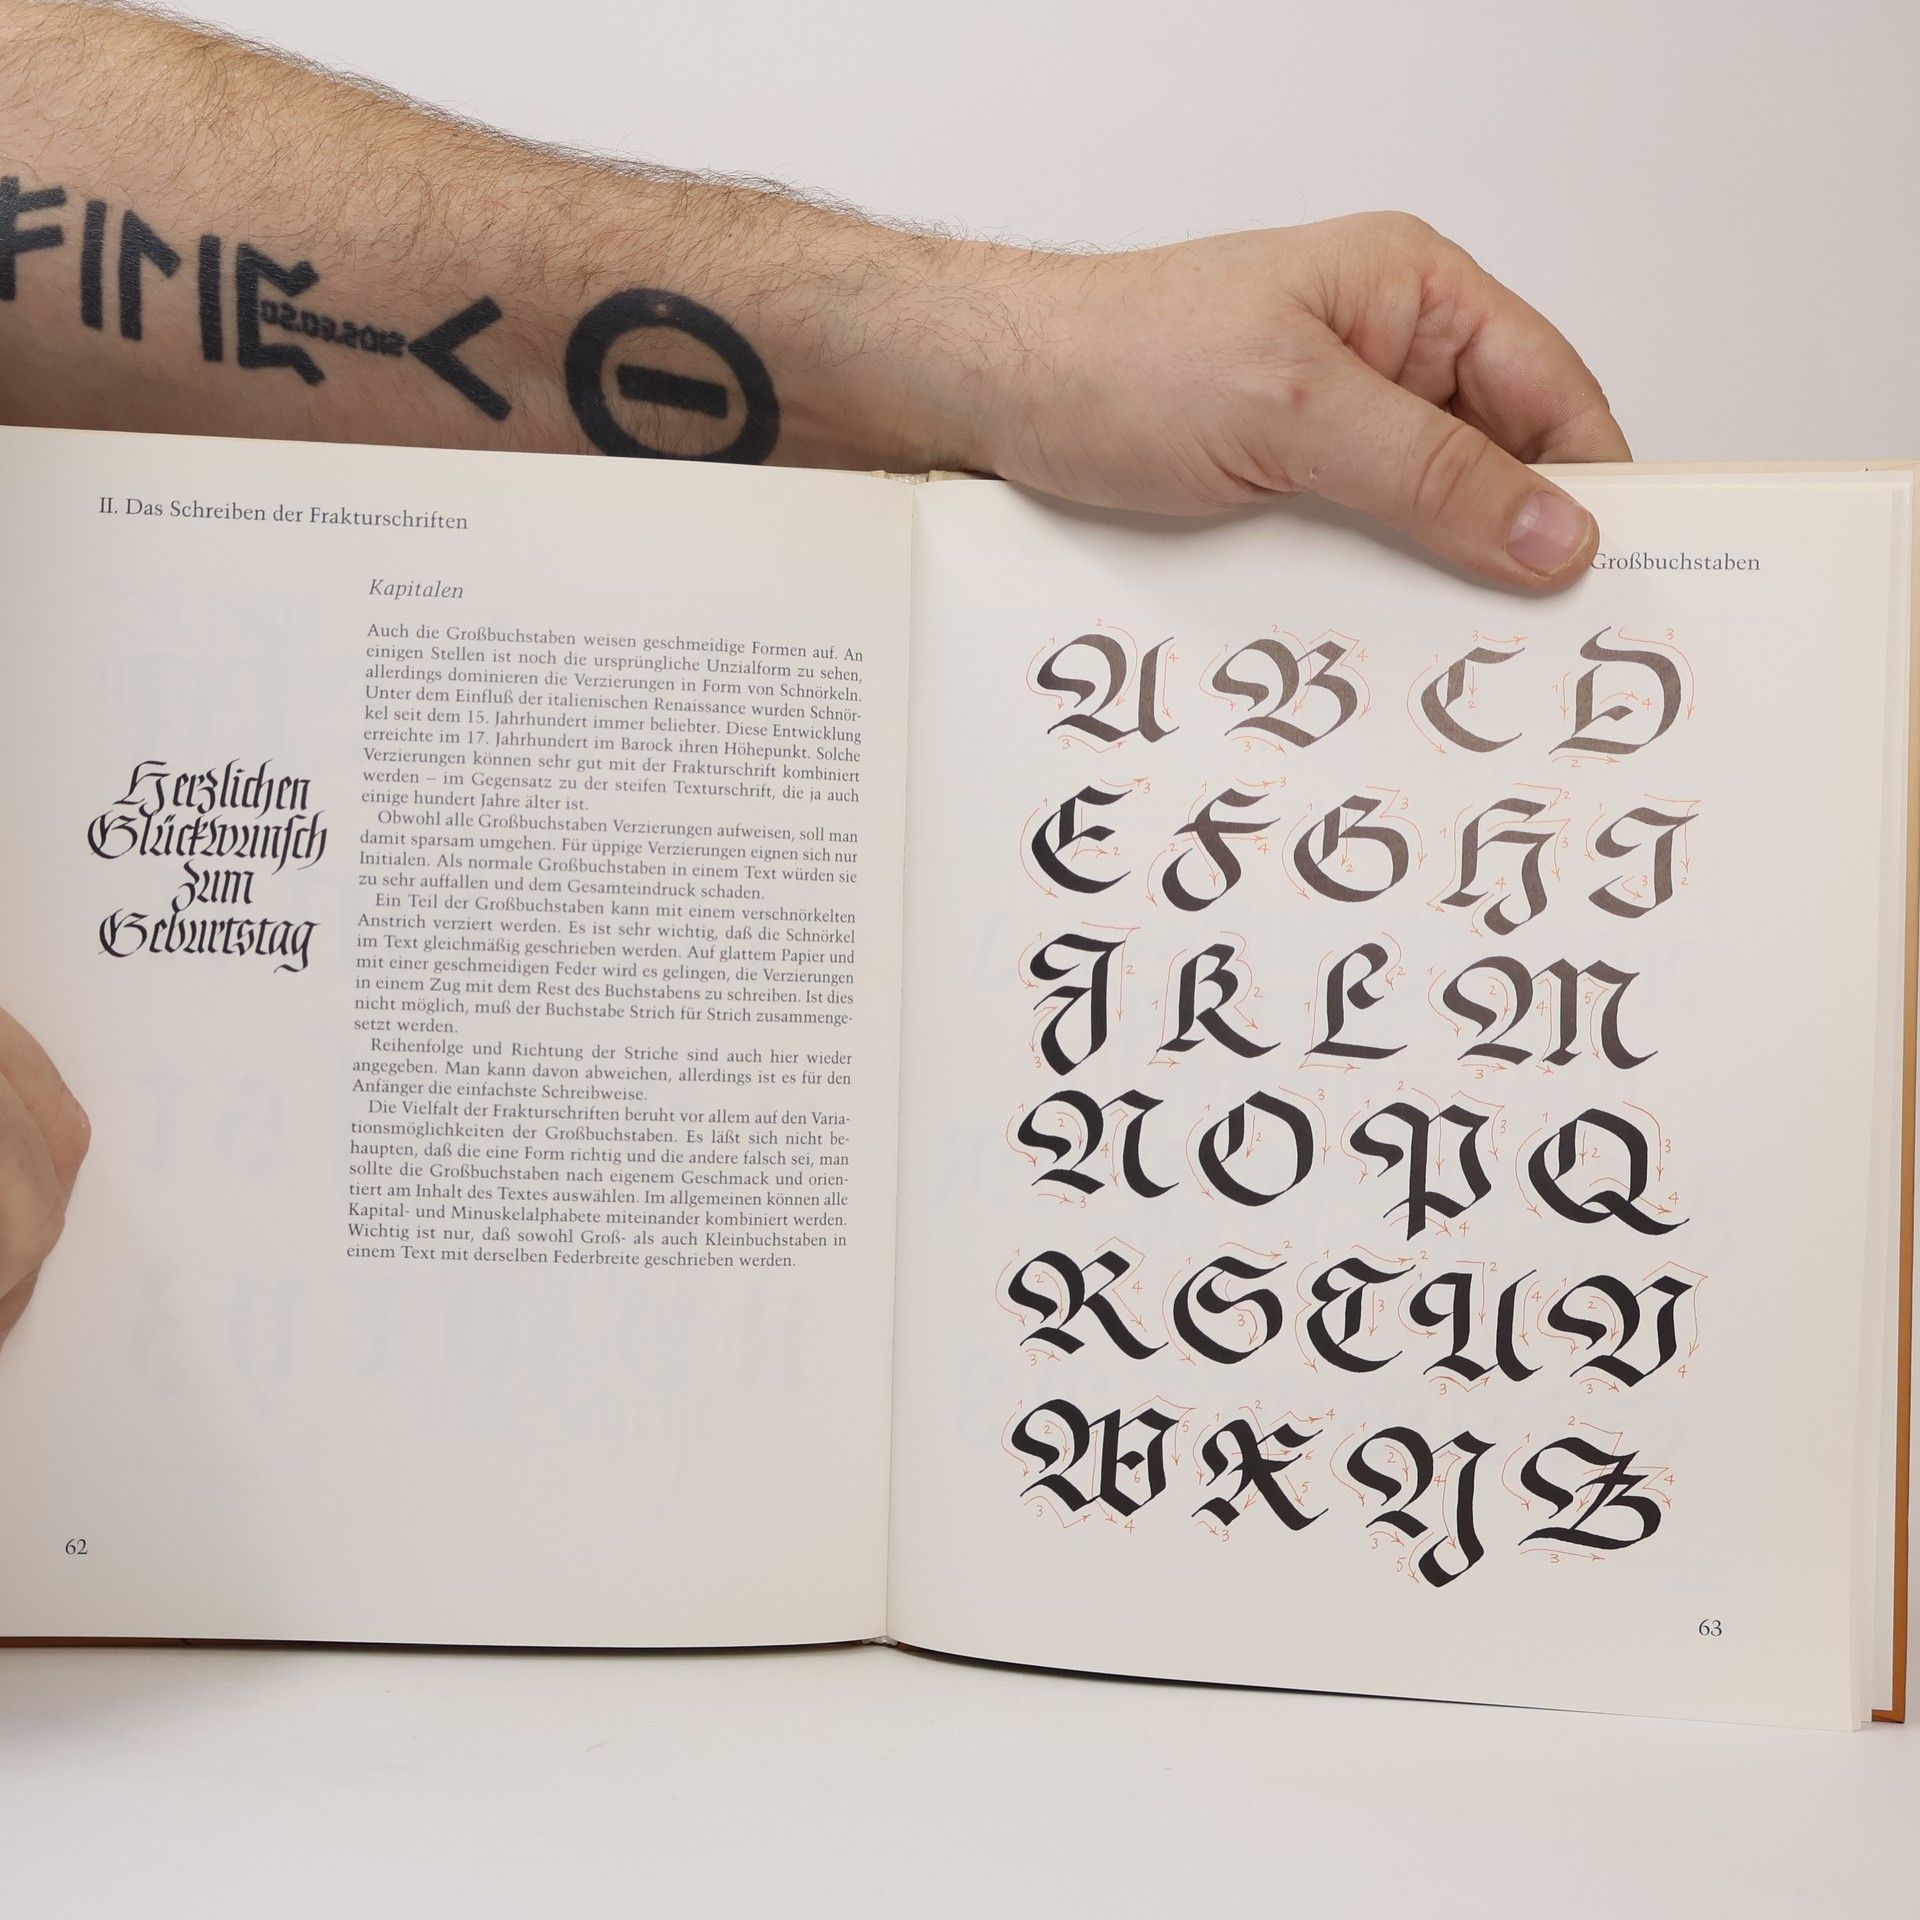 II. Das Schreiben der Frakturschriften
Kapitalen
Auch die Großbuchstaben weisen geschmeidige Formen auf. An
einigen Stellen ist noch die ursprüngliche Unzialform zu sehen,
allerdings dominieren die Verzierungen in Form von Schnörkeln.
Unter dem Einfluß der italienischen Renaissance wurden Schnör-
kel seit dem 15. Jahrhundert immer beliebter. Diese Entwicklung
erreichte im 17. Jahrhundert im Barock ihren Höhepunkt. Solche
Verzierungen können sehr gut mit der Frakturschrift kombiniert
werden – im Gegensatz zu der steifen Texturschrift, die ja auch
einige hundert Jahre älter ist.
Obwohl alle Großbuchstaben Verzierungen aufweisen, soll man
damit sparsam umgehen. Für üppige Verzierungen eignen sich nur
Initialen. Als normale Großbuchstaben in einem Text würden sie
zu sehr auffallen und dem Gesamteindruck schaden.
Ein Teil der Großbuchstaben kann mit einem verschnörkelten
Anstrich verziert werden. Es ist sehr wichtig, daß die Schnörkel
im Text gleichmäßig geschrieben werden. Auf glattem Papier und
mit einer geschmeidigen Feder wird es gelingen, die Verzierungen
in einem Zug mit dem Rest des Buchstabens zu schreiben. Ist dies
nicht möglich, muß der Buchstabe Strich für Strich zusammenge-
setzt werden.
Reihenfolge und Richtung der Striche sind auch hier wieder
angegeben. Man kann davon abweichen, allerdings ist es für den
Anfänger die einfachste Schreibweise.
Die Vielfalt der Frakturschriften beruht vor allem auf den Varia-
tionsmöglichkeiten der Großbuchstaben. Es läßt sich nicht be-
haupten, daß die eine Form richtig und die andere falsch sei, man
sollte die Großbuchstaben nach eigenem Geschmack und orien-
tiert am Inhalt des Textes auswählen. Im allgemeinen können alle
Kapital- und Minuskelalphabete miteinander kombiniert werden.
Wichtig ist nur, daß sowohl Groß- als auch Kleinbuchstaben in
einem Text mit derselben Federbreite geschrieben werden.
Herzlichen
Glückwunsch
zum
Geburtstag
62
Großbuchstaben
A B C D
E F G H I
J K L M
N O P Q
R S T U V
W X Y Z
63